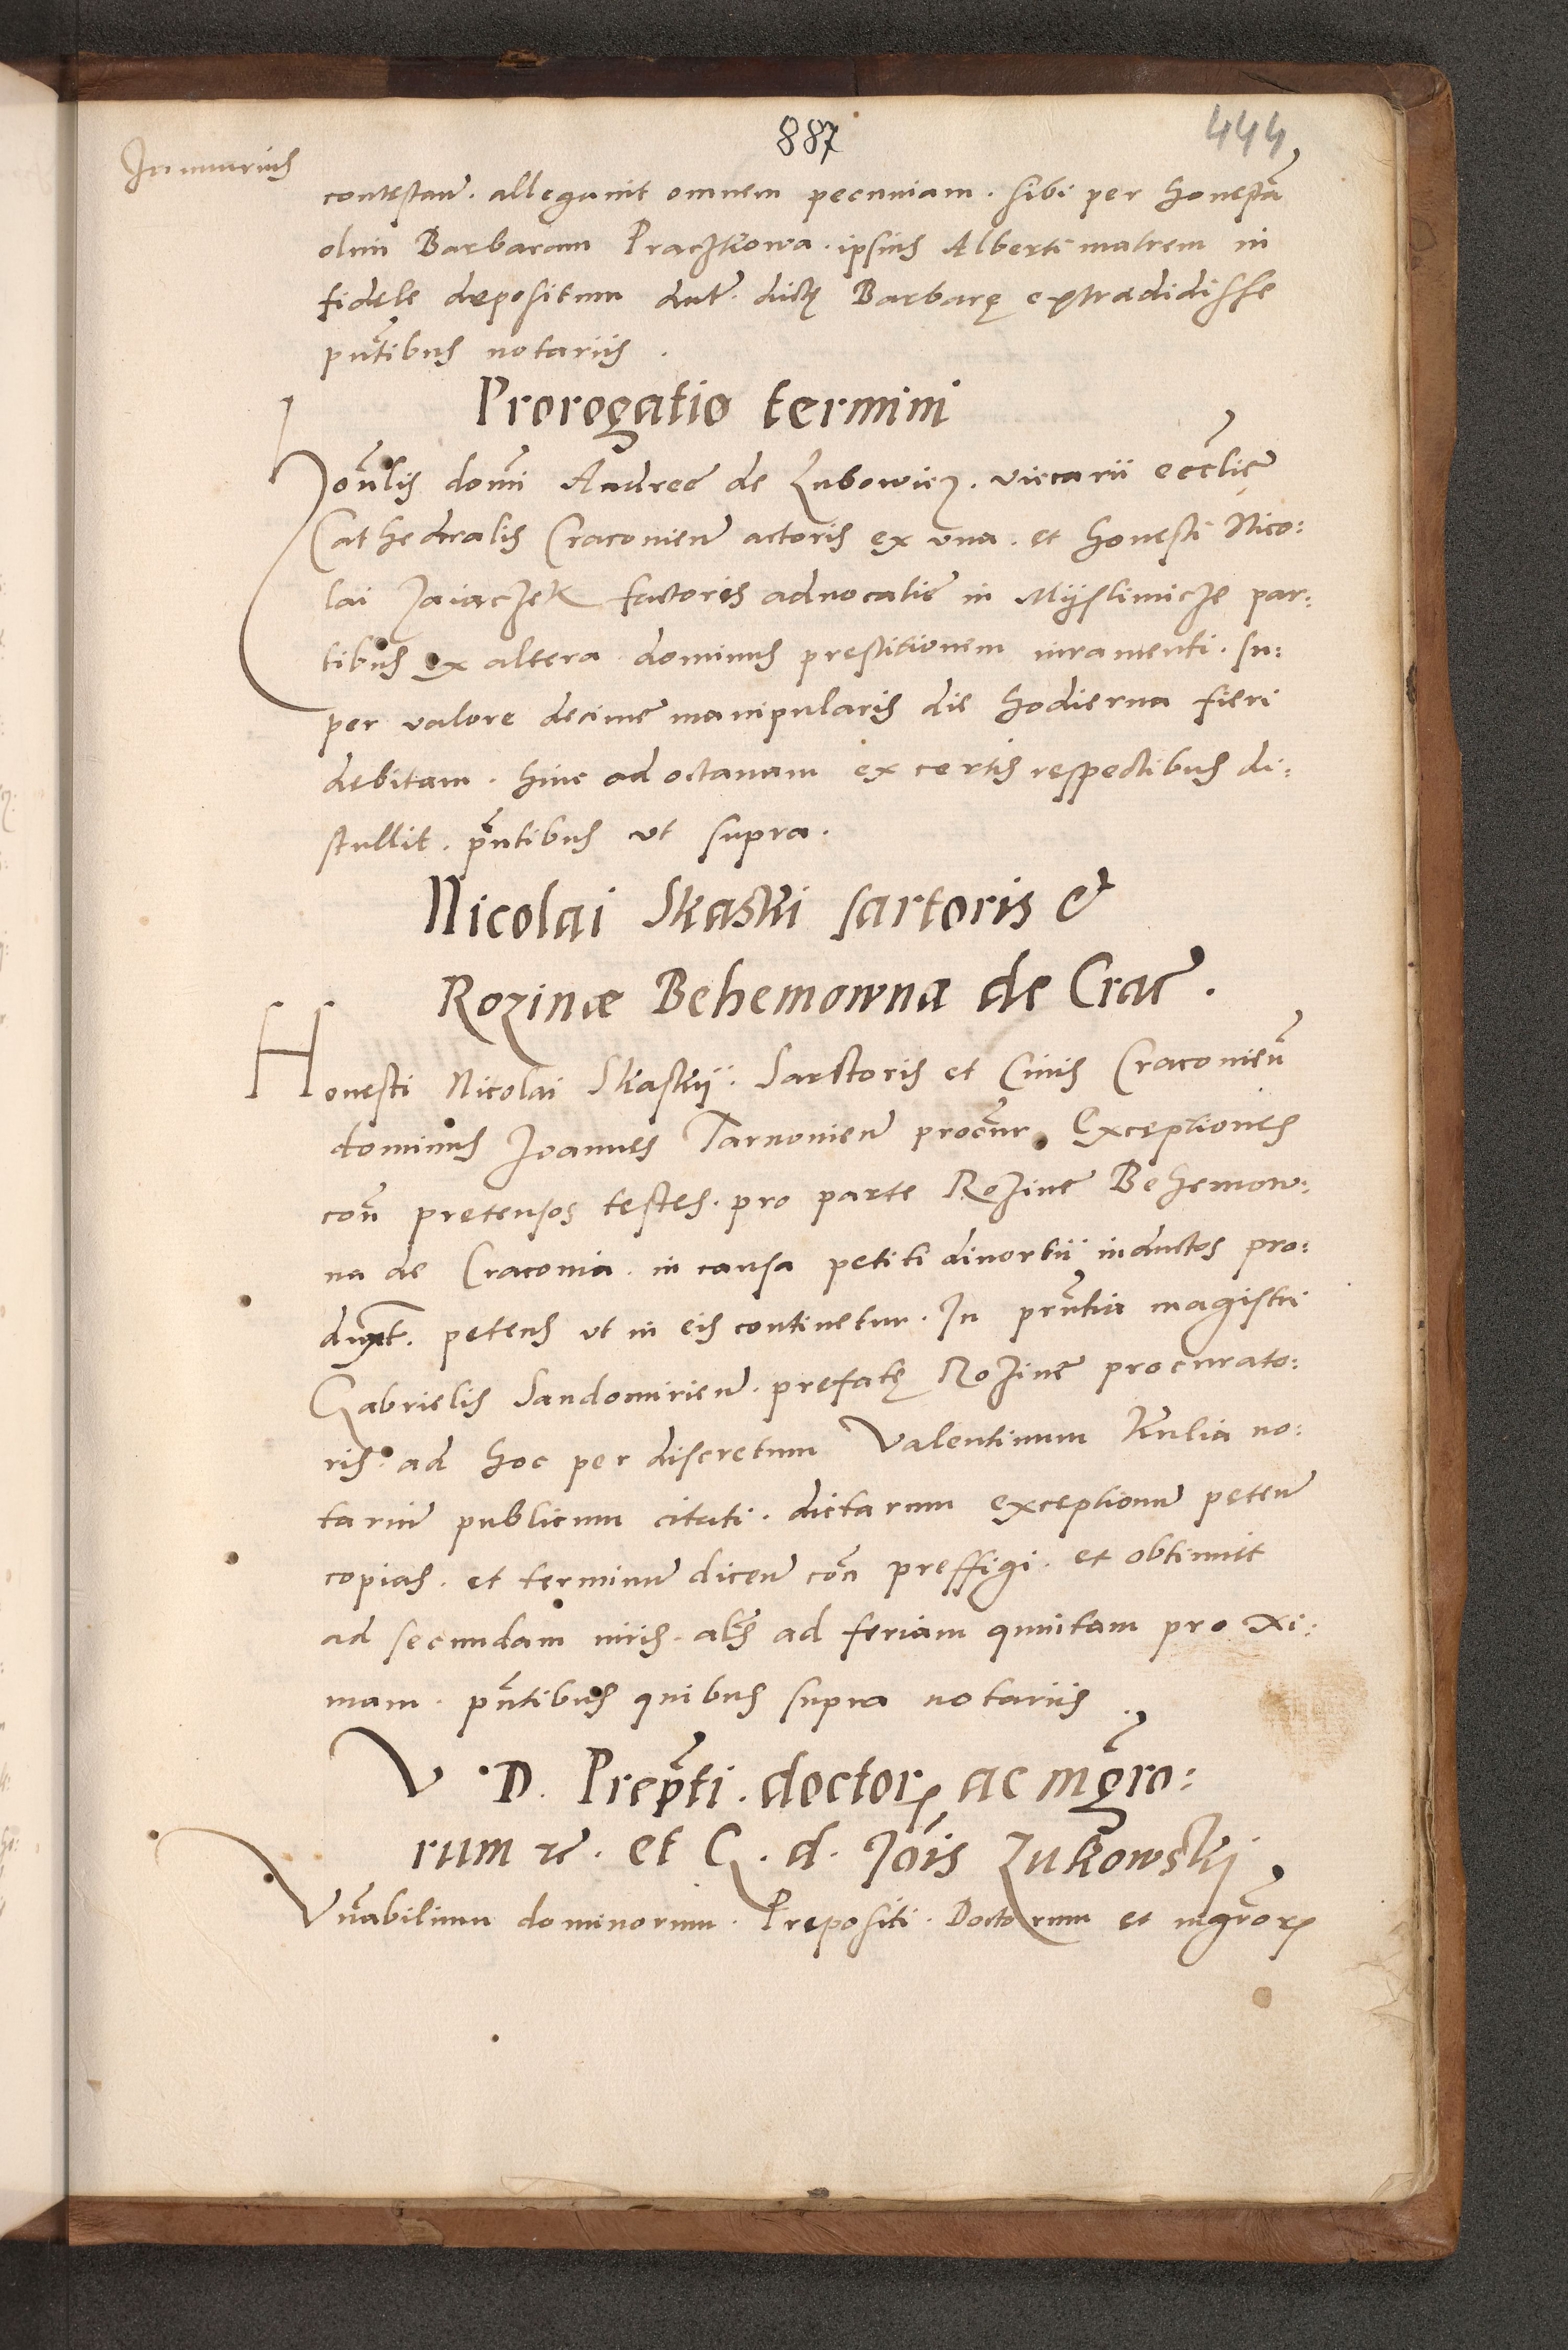 887
444
Januarius
contestaň. allegavit omnem pecuniam. sibi per honestã
olim Barbaram Praczkowa. ipsius Alberti matrem in
fidele depositum datã. dictę Barbarę extradidisse
pñtibus notariis.
Prorogatio termini
Honˢlis domĩ Andreę de Lubowicz. vicarii eccľie
Cathedralis Cracovieň actoris ex vna. et honesti Nico:
lai Zaiaczek factoris advocatie in Myslimicze par:
tibus ex altera dominus prestitionem iuramenti. su:
per valore decime manipularis die hodierna fieri
debitam. hinc ad octavam ex certis respectibus di:
stullit. pñtibus vt supra.
Nicolai Skaski sartoris &
Rozinæ Behemowna de Crac̃.
Honesti Nicolai Skaskij. Sarctoris et Civis Cracovieň
dominus Joannes Tarnovieň procũr. Exceptiones
coñ pretensos testes. pro parte Rozine Behemow:
na de Cracovia. in causa petiti divortii inductos pro:
duxt. petens vt in eis continetur. In prñtia magistri
Gabrielis Sandomirieň. prefatę Rozine procurato:
ris. ad hoc per discretum Valentinum Kulia no:
tariũ publicum citati. dictarum exceptionũ peteň
copias. et terminũ diceň coñ preffigi. et obtinuit
ad secundam iuris. als̃ ad feriam quintam proxi:
mam. pñtibus quibus supra notariis.
V. D. Prep̃ti. doctorꝝ ac mg̃ro:
rum ꝛc̃. et G. d. Jõis Zukowskj.
Vñabilium dominorum. Prepositi. Doctorum et mgr̃orꝝ